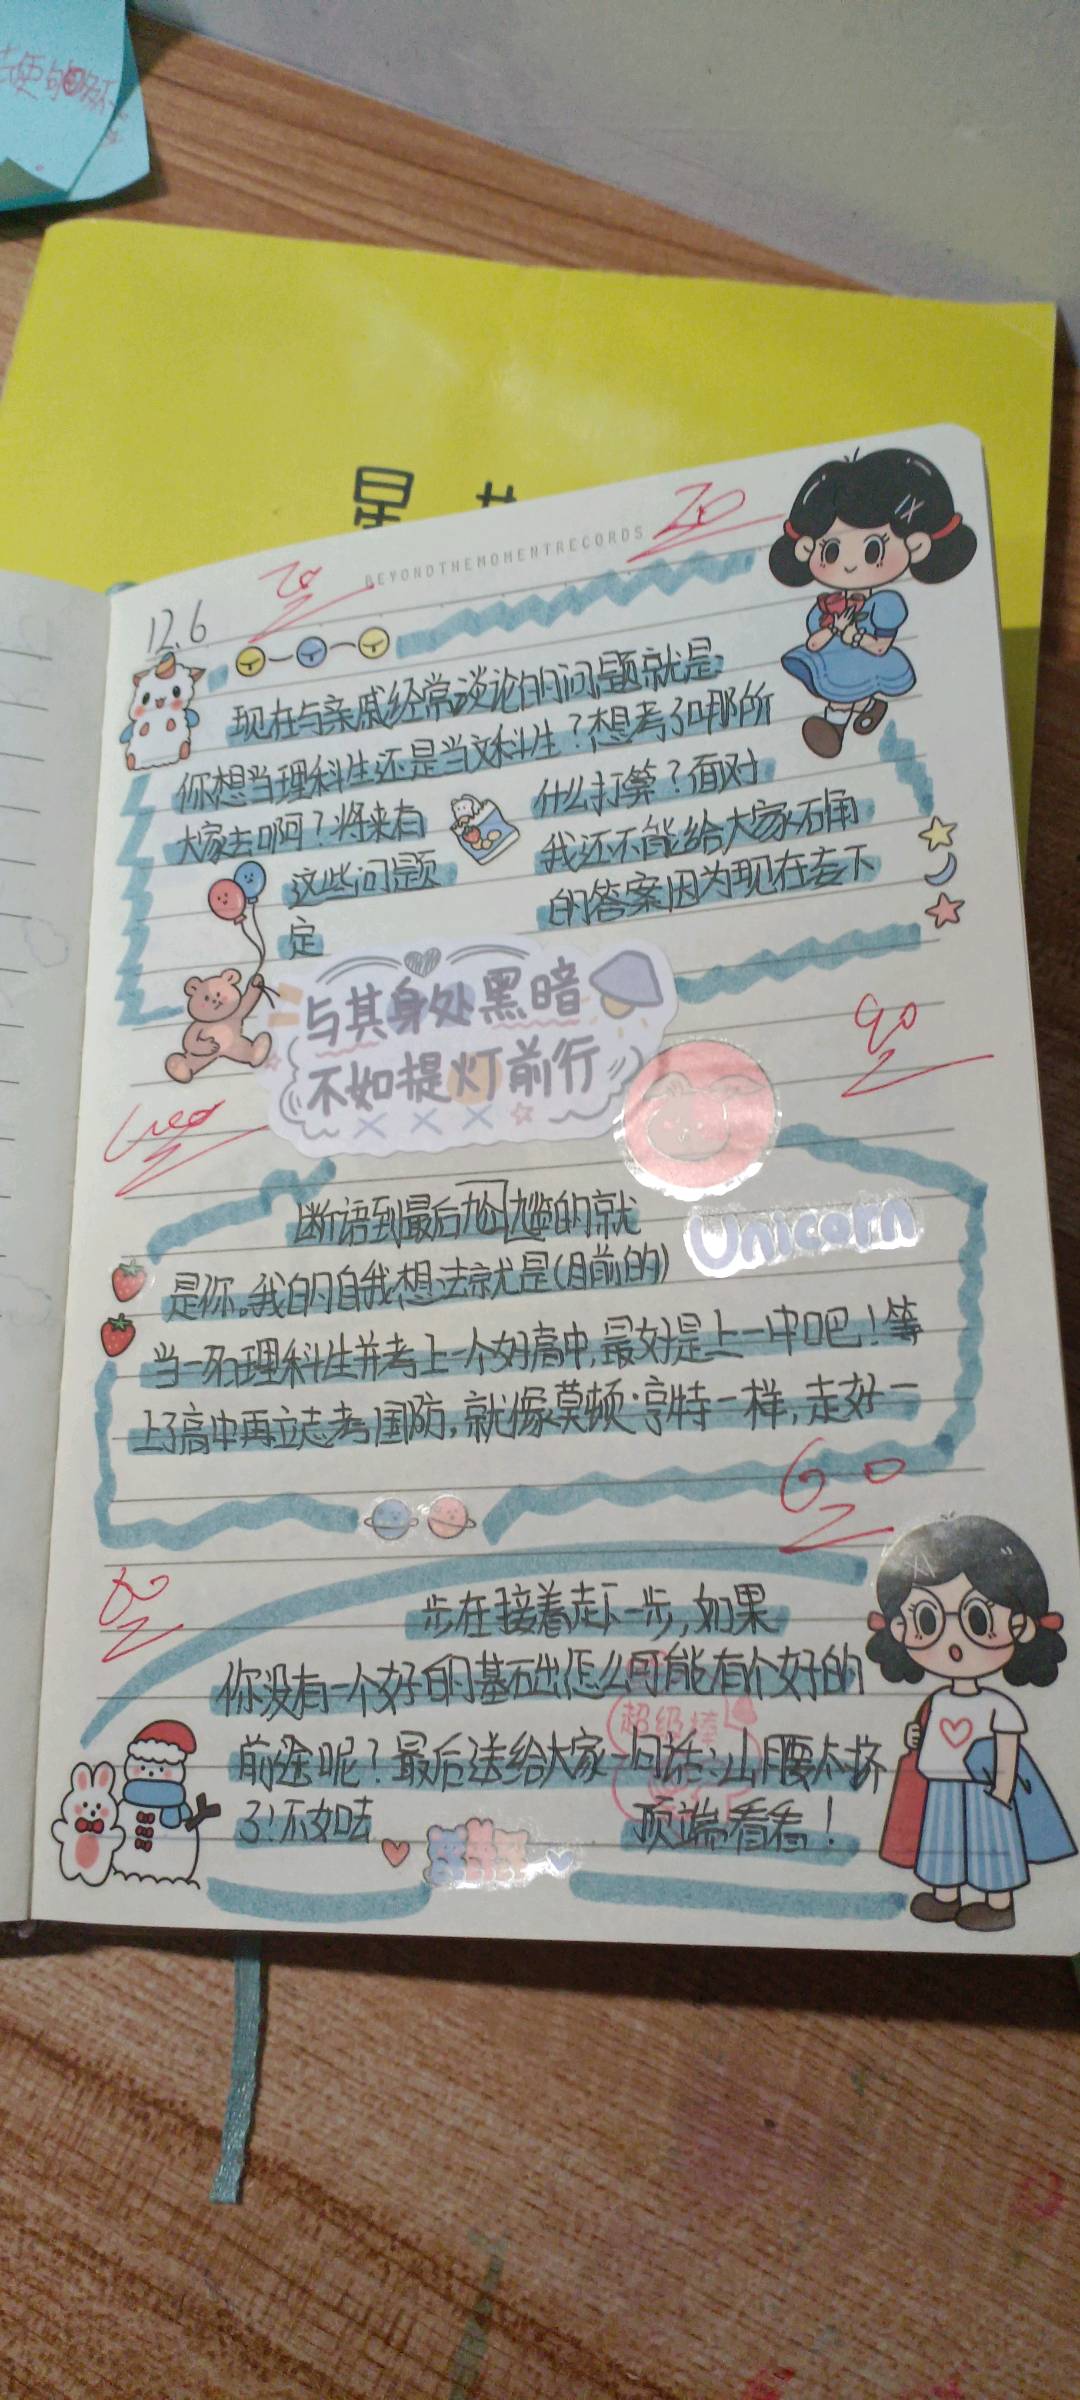 BEYONDTHEMOMENTRECORDS
20
20
12.6
现在与亲戚经常谈论的问题就是:
你想当理科生还是当文科生?想考了哪所
大家去啊?将来有什么打算?面对
这些问题我还不能给大家确
定的答案因为现在去下
与其身处黑暗
不如提灯前行
90
断语到最后尬尴的就
Unicorn
是你。我的自我想法就是(目前的)
当一理科生并考上一个好高中,最好是上一中吧!等
上了高中再立志考国防,就像莫顿·亨特一样,走好一
60
80
步在接着走下一步,如果
你没有一个好的基础怎么可能有个好的
超级棒
前途呢?最后送给大家一句话:山腰太挤
了!不如去顶端看看!